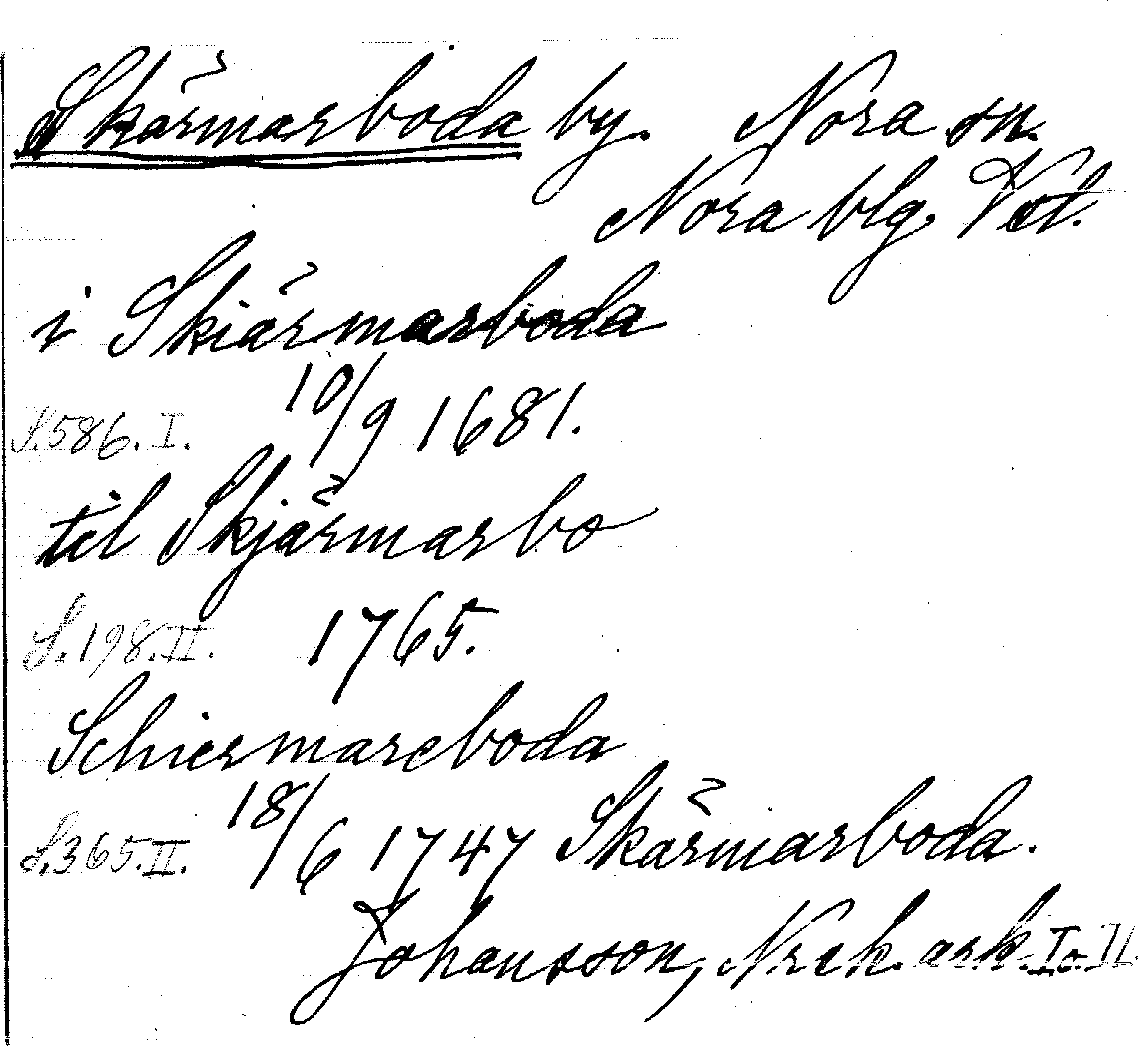 Skärmarboda by. Nora sn.
Nora blg. Vstl.
i Skiärmarboda
10/9 1681.
S.586.I.
til Skjärmarbo
S.198.II. 1765.
Schiermareboda
S.365.II. 18/6 1747 Skärmarboda.
Johansson, Nrek. ark. I o. II.